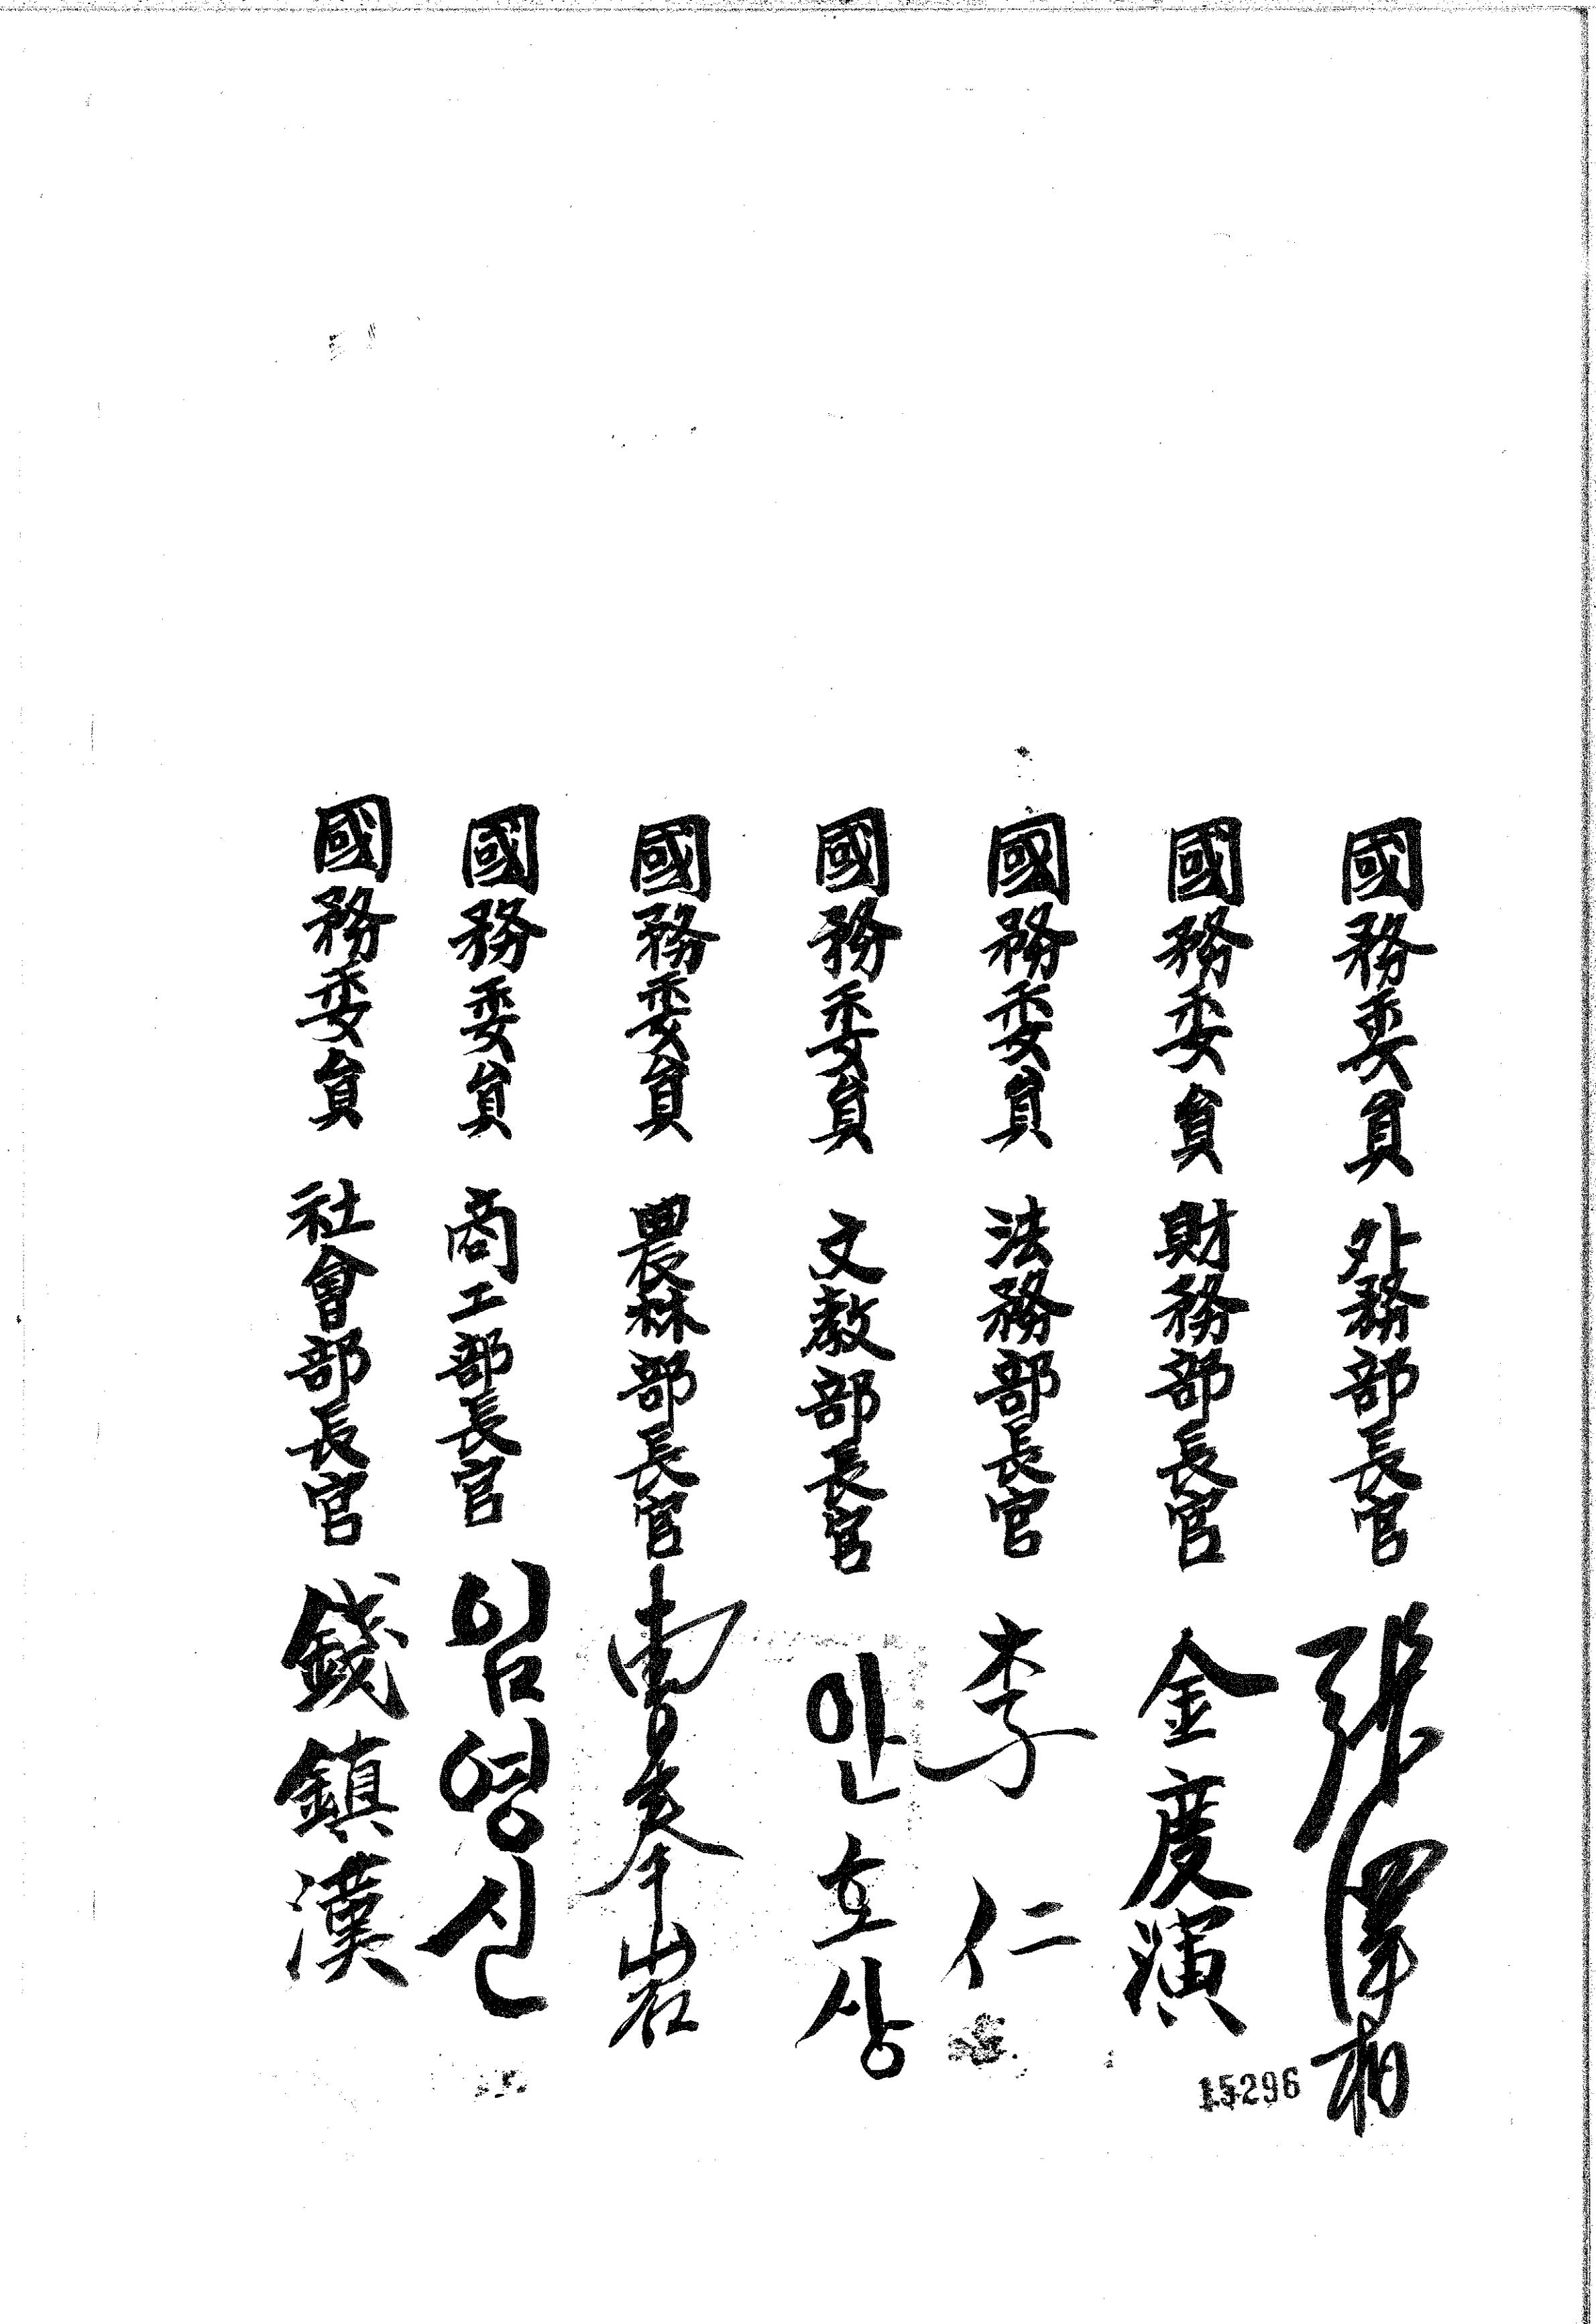 國務委員 外務部長官 張澤相
國務委員 財務部長官 金度演
國務委員 法務部長官 李仁
國務委員 文教部長官 안호상
國務委員 農林部長官 曺奉岩
國務委員 商工部長官 임영신
國務委員 社會部長官 錢鎮漢
15296